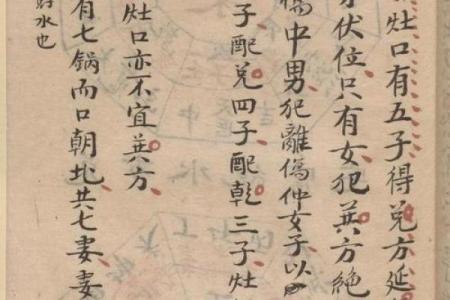 灶口有五子得兑方延
伏位只有女犯巽方絶
傷中男犯離傷仲女子以
子配兑四子配乾三子灶
灶口亦不宜巽方
有七锅而口朝北共七妻妻
水也